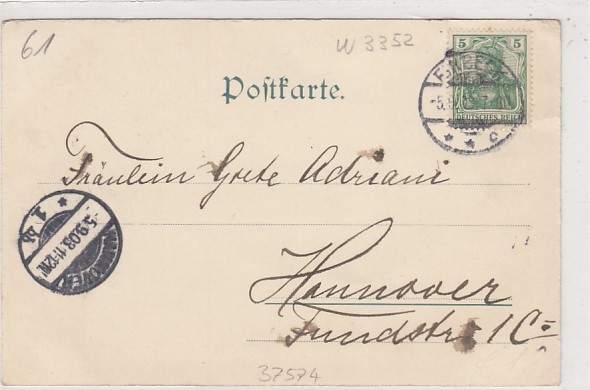 61
W 3352
5 5
DEUTSCHES REICH
Postkarte.
Fräulein Grete Adriani
Hannover
Fundstr. 1 C
HANNOVER
-5.9.03.11-12N.
* 1 *
37574